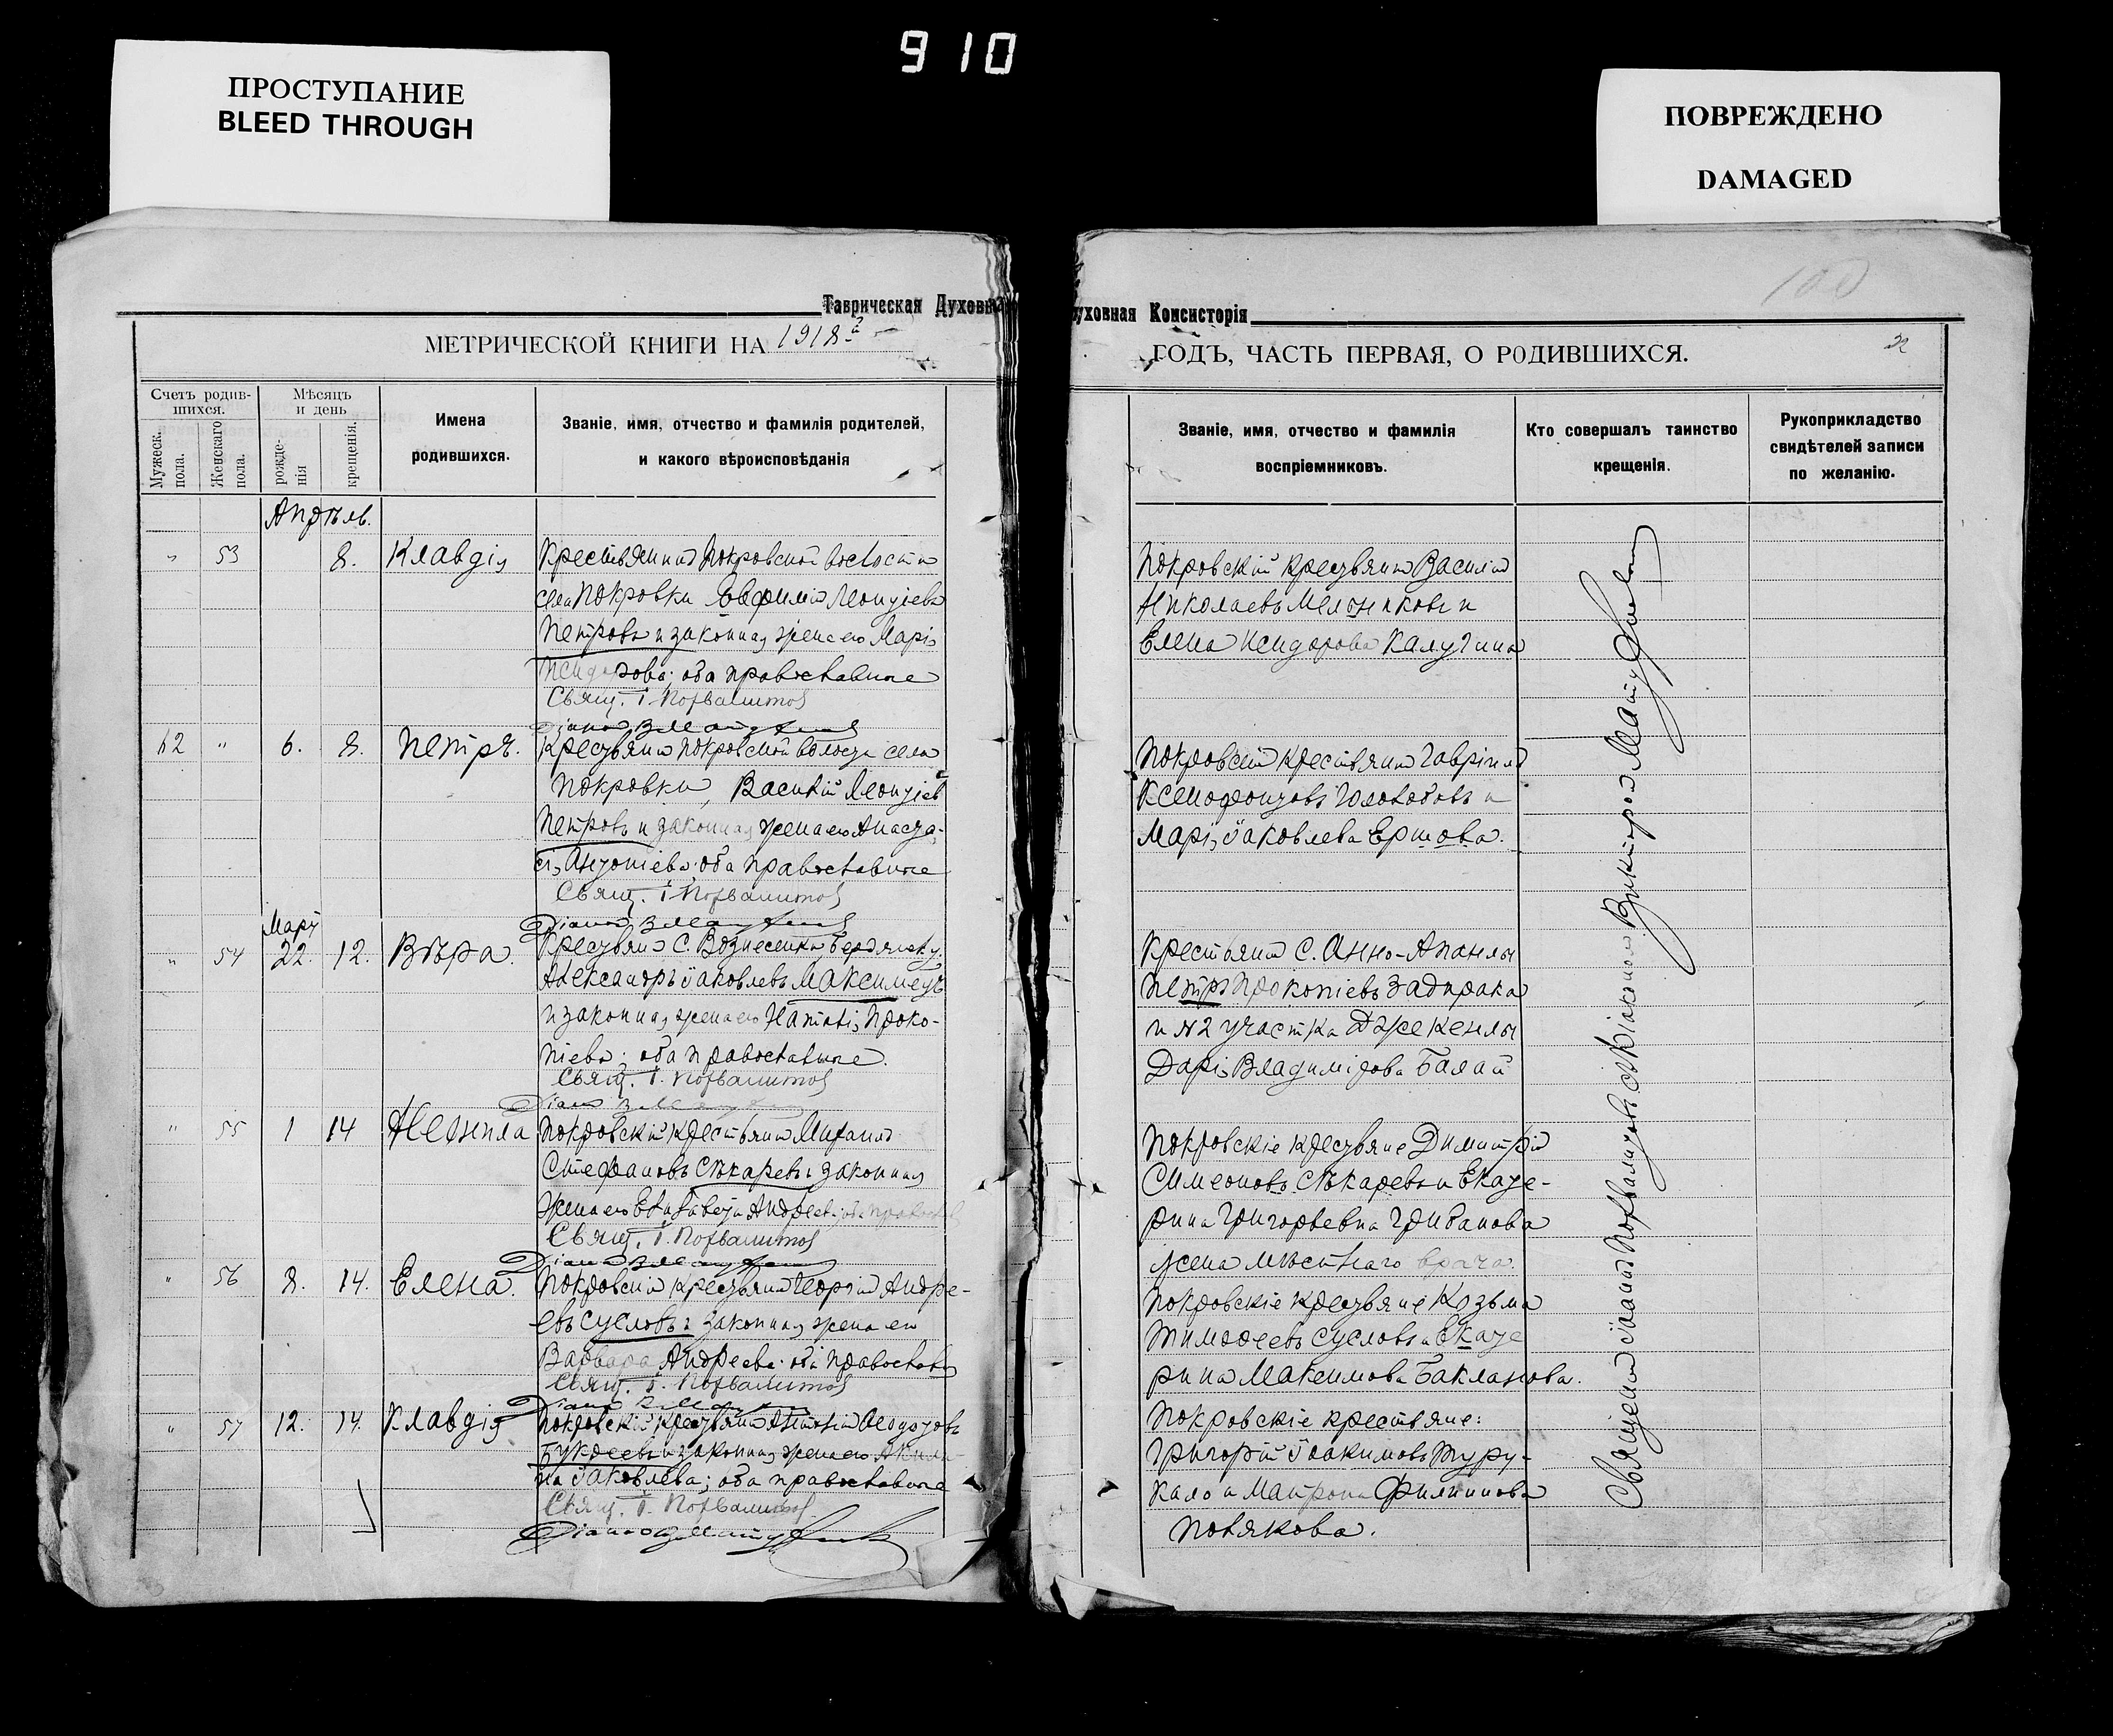 910
ПРОСТУПАНИЕ
BLEED THROUGH
ПОВРЕЖДЕНО
DAMAGED
Таврическая Духовн
уховная Консисторія
МЕТРИЧЕСКОЙ КНИГИ НА 1918
ГОДЪ, ЧАСТЬ ПЕРВАЯ, О РОДИВШИХСЯ.
100
Счетъ родив-
шихся.
Мужеск.
пола.
Женскаго
пола.
Мѣсяцъ
и день
рожде-
нія
крещенія.
Имена
родившихся.
Званіе, имя, отчество и фамилія родителей,
и какого вѣроисповѣданія
Званіе, имя, отчество и фамилія
воспріемниковъ.
Кто совершалъ таинство
крещенія.
Рукоприкладство
свидѣтелей записи
по желанію.
Апрѣль.
" 53 8. Клавдія
Крестьянинъ Покровской волости
села Покровки Евфимій Леонтіевъ
Петровъ и законная жена его Марія
Исидорова; оба православные
Свящ. І. Похвалитовъ
Покровскій крестьянинъ Василій
Николаевъ Мельниковъ и
Елена Исидорова Калугина
62 " 6. 8. Петръ.
Крестьянинъ Покровской волости села
Покровки, Василій Леонтіевъ
Петровъ и законная жена его Анаста-
сія Антоніева; оба православные
Свящ. І. Похвалитовъ
Покровскій крестьянинъ Гавріилъ
Ксенофонтовъ Головобовъ и
Марія Іаковлева Ершова.
Мартъ
" 54 22. 12. Вѣра.
Крестьянинъ С. Вознесенки Бердянск. у.
Александръ Іаковлевъ Максимецъ
и законная жена его Наталія Проко-
піева; оба православные.
Свящ. І. Похвалитовъ
Крестьянинъ С. Анно-Апанлы
Петръ Прокопіевъ Задирака
и №2 участка Джекенлы
Дарія Владимірова Балай
" 55 1 14 Неонила
Покровскій крестьянинъ Михаилъ
Стефановъ Сѣкаревъ и законная
жена его Елисавета Андреева; оба православ
Свящ. І. Похвалитовъ
Покровскіе крестьяне Димитрій
Симеоновъ Сѣкаревъ и Екате-
рина Григорьевна Грибанова
жена мѣстнаго врача.
" 56 8. 14. Елена.
Покровскій крестьянинъ Георгій Андре-
евъ Сусловъ и законная жена его
Варвара Андреева; оба православн
Свящ. І. Похвалитовъ
Покровскіе крестьяне Козьма
Тимофеевъ Сусловъ и Екате
рина Максимова Бакланова.
" 57 12. 14. Клавдія
Покровскій крестьянинъ
и законная жена его Акили-
на Іаковлева; оба православные
Свящ. І. Похвалитовъ
Покровскіе крестьяне:
Григорій Іоакимовъ Туру-
кало и Матрона Филиппова
Полякова.
Священникъ Іоаннъ Похвалитовъ съ Діакономъ Викторомъ